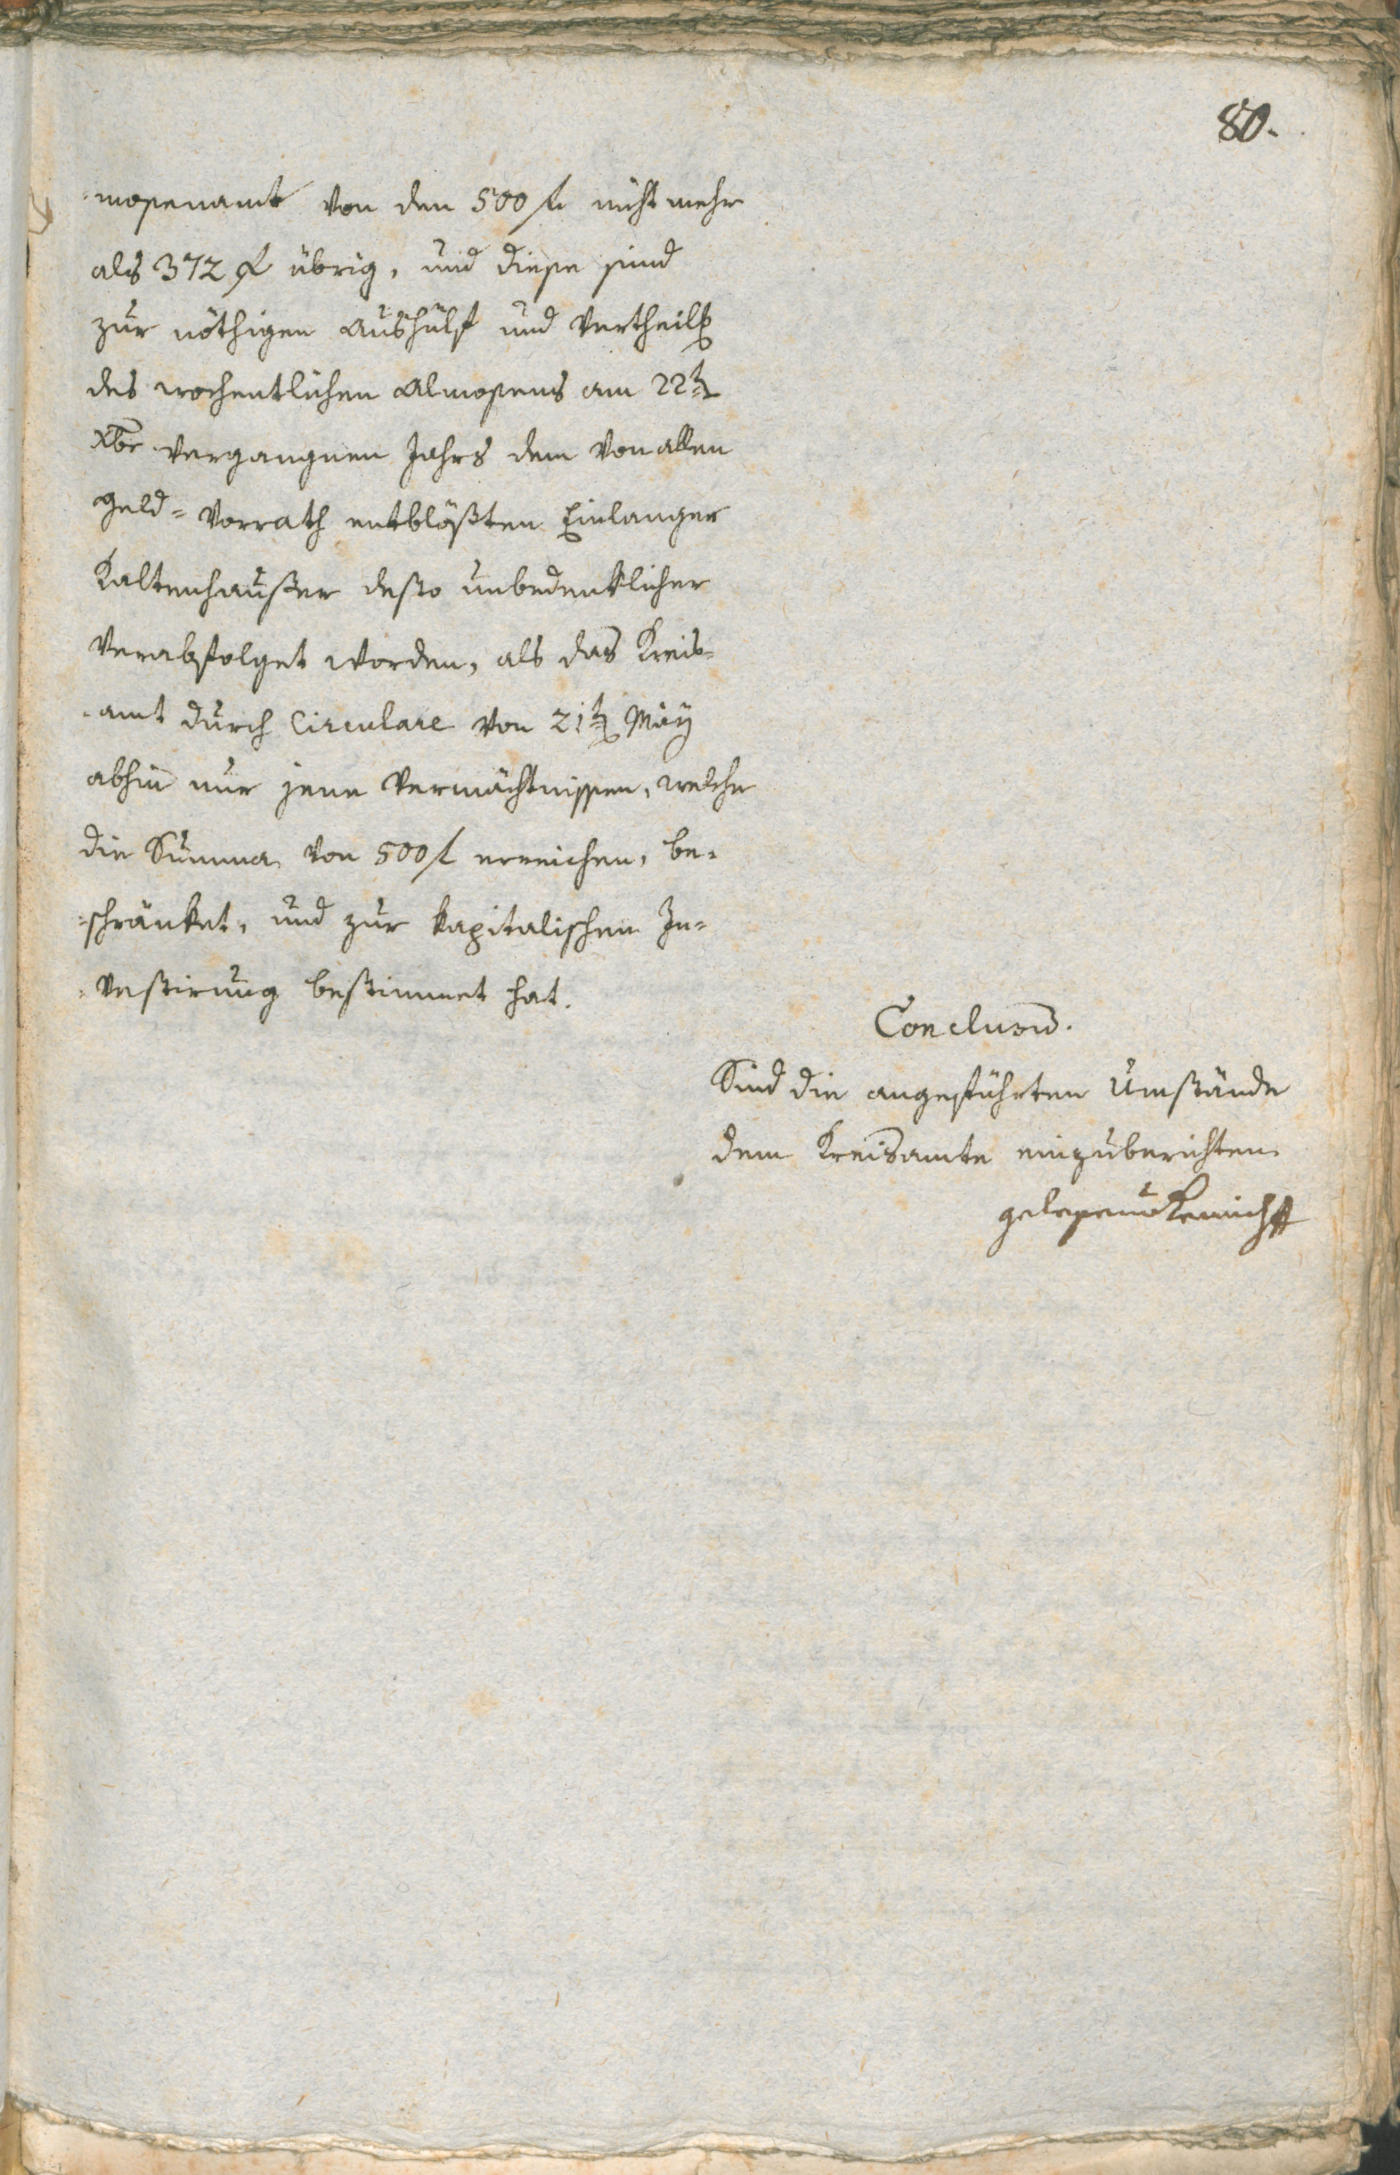 80.
mosenamt von den 500 f. nicht mehr
als 372 f übrig, und diese sind
zur nöthigen Aushülf und Vertheilg
des wochentlichen Almosens am 22t
Xbr vergangnen Jahrs dem von allen
Geld= Vorrath entblößten Einlanger
Kaltenhauser desto unbedenklicher
verabfolget worden, als das Kreis=
amt durch Circulare von 21t May
abhin nur jene Vermächtnissen, welche
die Summa von 500 f erreichen, be=
=schränket, und zur kapitalischen In=
=vestirung bestimmet hat.
Conclusū.
Sind die angeführten Umstände
dem Kreisamte einzuberichten